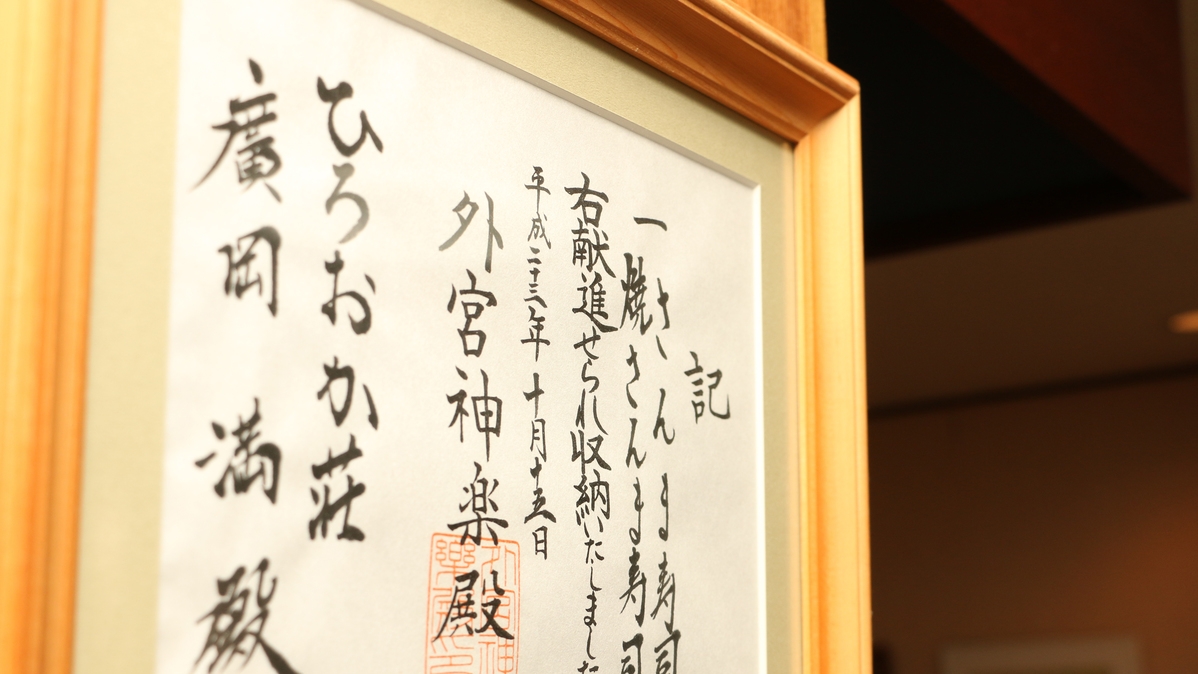 記
一 さんま寿司
焼さんま寿司
右献進せられ収納いたしました
平成二十三年 十月十五日
外宮神楽殿
ひろおか荘
廣岡 満 殿